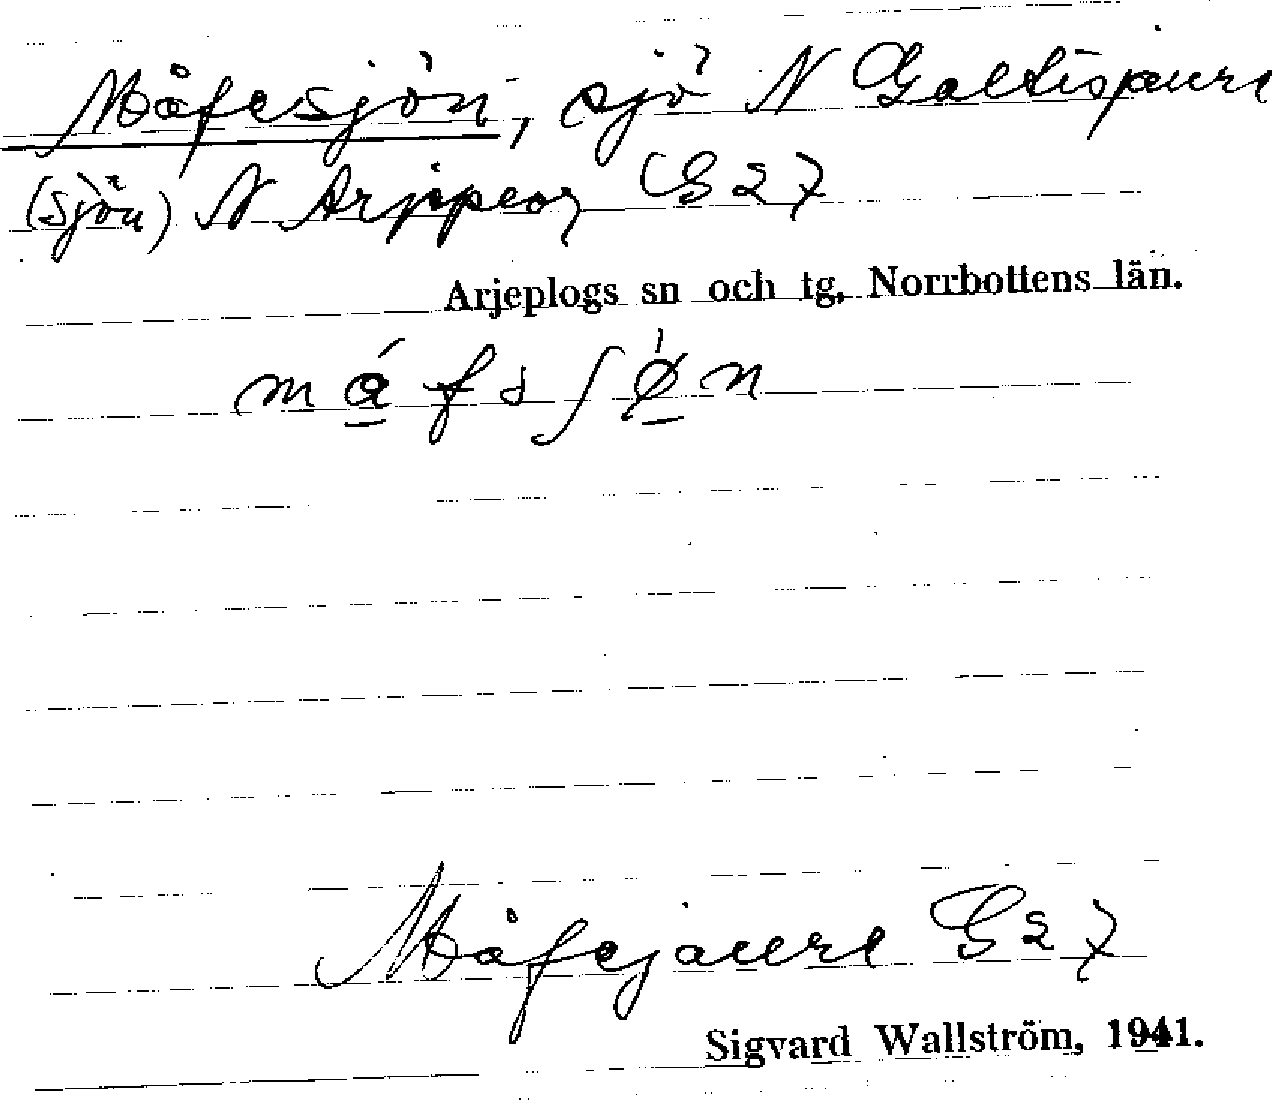 Måfesjön, sjö N Galtispaure
(sjön) N Arjepeog G 27
Arjeplogs sn och tg, Norrbottens län.
mǻfsʃø̀n
Måfejaure G 27
Sigvard Wallström, 1941.